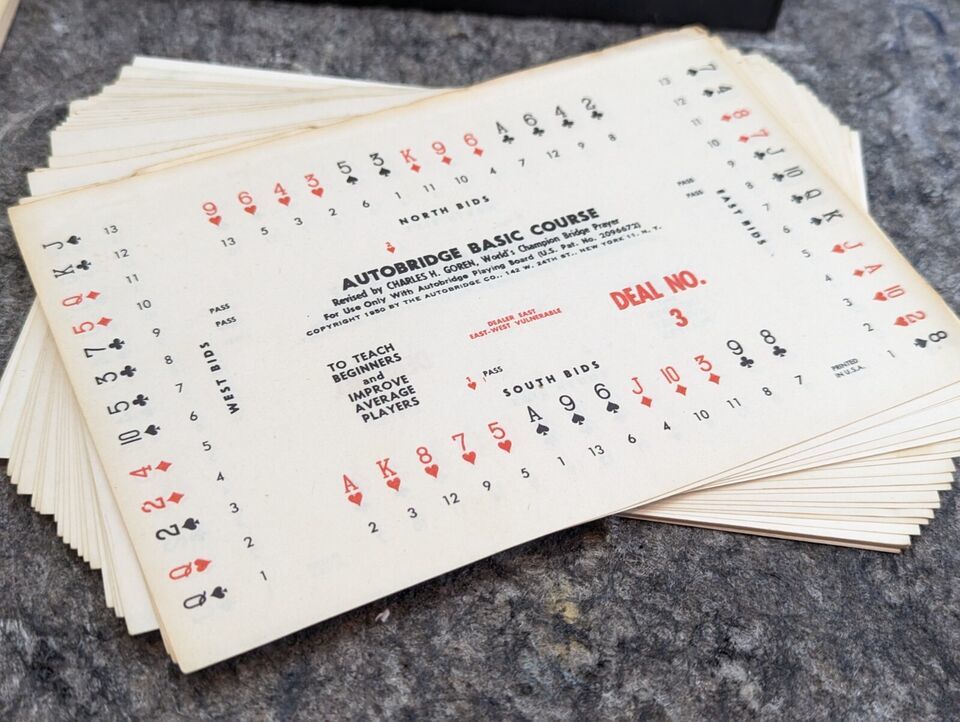 9 6 4 3 5 3 K 9 6 A 6 4 2
13 5 3 2 6 1 11 10 4 7 12 9 8
NORTH BIDS
2
AUTOBRIDGE BASIC COURSE
Revised by CHARLES H. GOREN, World's Champion Bridge Prayer
For Use Only With Autobridge Playing Board (U.S. Pat. No. 2096672)
COPYRIGHT 1950 BY THE AUTOBRIDGE CO., 142 W. 24TH ST., NEW YORK 11, N. Y.
J K Q 5 7 3 5 10 4 2 2 Q Q
13 12 11 10 9 8 7 6 5 4 3 2 1
PASS
PASS
WEST BIDS
DEALER EAST
EAST-WEST VULNERABLE
DEAL NO.
3
TO TEACH
BEGINNERS
and
IMPROVE
AVERAGE
PLAYERS
PASS
PASS
EAST BIDS
7 4 8 7 J 10 Q K J A 10 2 8
13 12 11 10 9 8 7 6 5 4 3 2 1
1 PASS
SOUTH BIDS
A K 8 7 5 A 9 6 J 10 3 9 8
2 3 12 9 5 1 13 6 4 10 11 8 7
PRINTED
IN U.S.A.